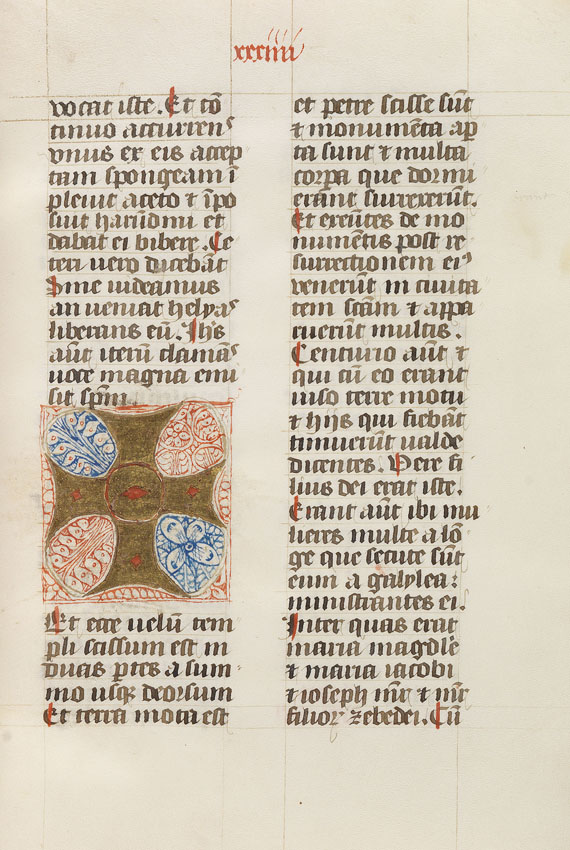 xxxiiii
vocat iste. Et cō
tinuo accurrens
vnus ex eis accep
tam spongeam ī
pleuit aceto ⁊ īpo
suit harūdini et
dabat ei bibere. Ce
teri uero dicebāt
Sine uideamus
an ueniat helyas
liberans eū. Ihs̄
aūt iterū clamās
uoce magna emi
sit sp̄m.
Et ecce uelū tem
pli scissum est in
duas ꝑtes a sum
mo usqꝫ deorsum
Et terra mota est
et petre scisse sūt
⁊ monumēta aꝑ
ta sunt ⁊ multa
corꝑa que dormi
erant surrexerūt.
Et exeūtes de mo
numētis post re
surrectionem eiꝰ
venerūt in ciuita
tem sc̄am ⁊ appa
ruerūt multis.
Centurio aūt ⁊
qui cū eo erant
uiso terre motu
⁊ hijs qui fiebāt
timuerūt ualde
dicentes. Vere fi
lius dei erat iste.
Erant aūt ibi mu
lieres multe a lō
ge que secute sūt
eum a galylea:
ministrantes ei.
Inter quas erat
maria magdīe
⁊ maria iacobi
⁊ ioseph mr̄ ⁊ mr̄
filioꝝ zebedei. Cū